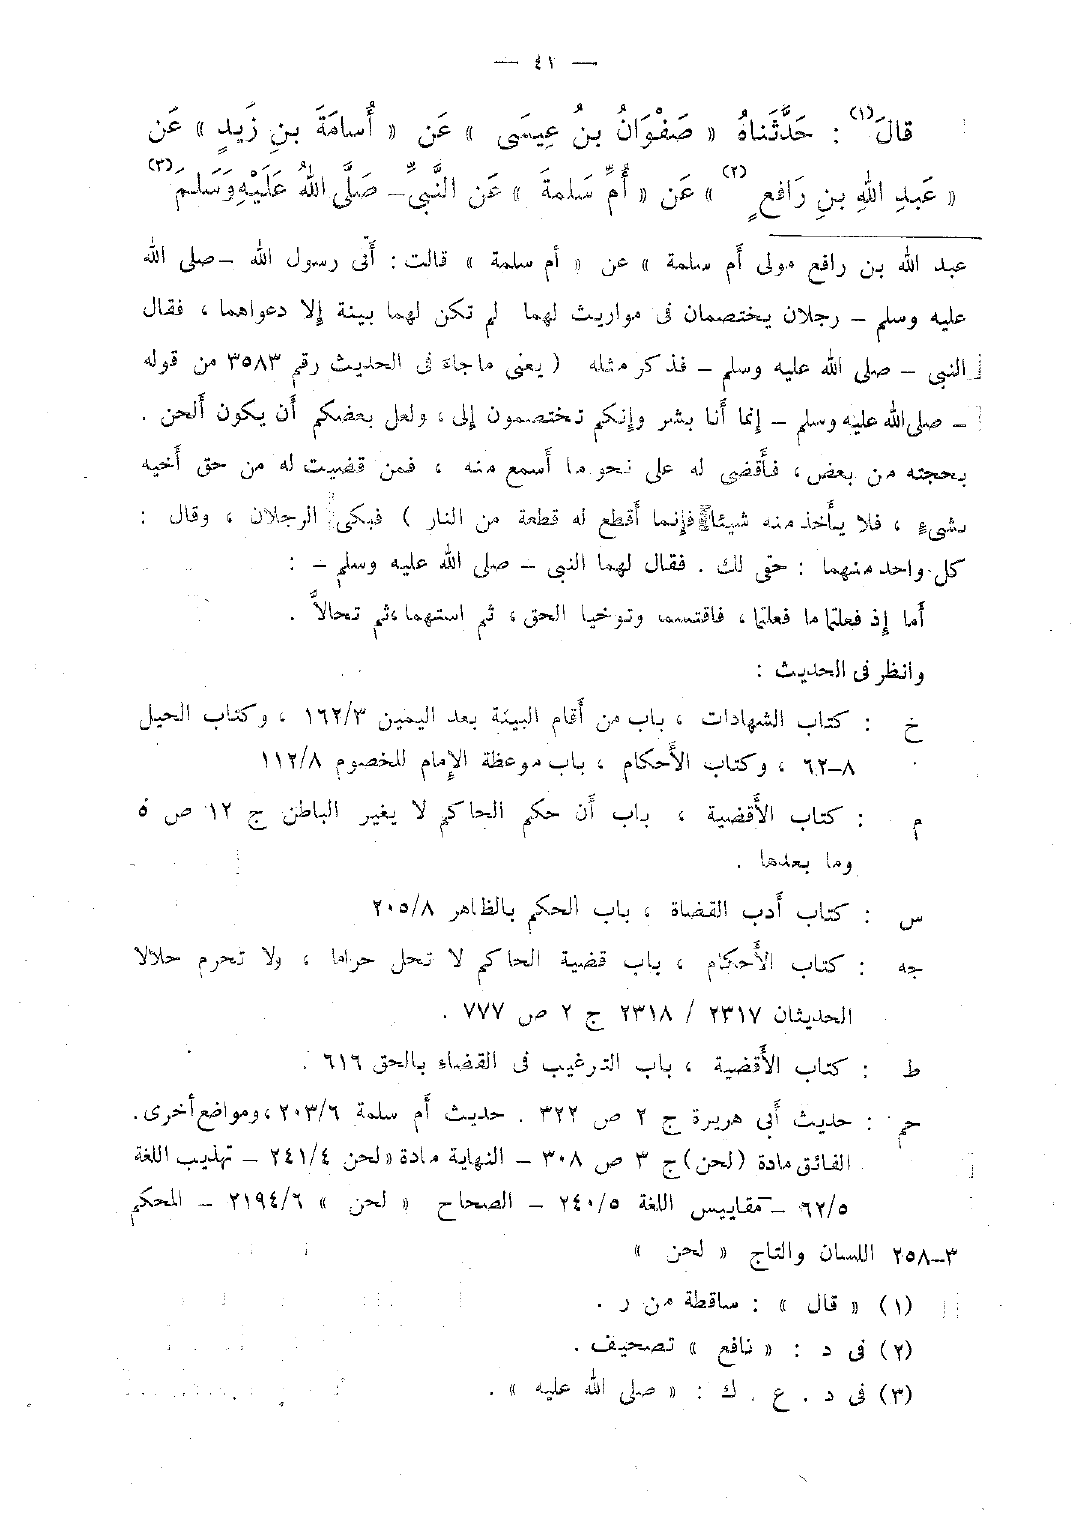 — ٤١ —
قالَ(١) : حَدَّثَناهُ « صَفْوَانُ بنُ عِيسَى » عَن « أُسامَةَ بنِ زَيدٍ » عَن
« عَبدِ اللهِ بنِ رَافعٍ (٢) » عَن « أُمِّ سَلَمةَ » عَن النَّبيِّ – صَلَّى اللهُ عَلَيْهِ وَسَلَمَ (٣)
عبد الله بن رافع مولى أم سلمة » عن « أم سلمة » قالت : أتى رسول الله – صلى الله
عليه وسلم – رجلان يختصمان فى مواريث لهما لم تكن لهما بينة إلا دعواهما ، فقال
النبى – صلى الله عليه وسلم – فذكر مثله ( يعنى ما جاء فى الحديث رقم ٣٥٨٣ من قوله
– صلى الله عليه وسلم – إنما أنا بشر وإنكم تختصمون إلى ، ولعل بعضكم أن يكون ألحن .
بحجته من بعض ، فأقضى له على نحو ما أسمع منه ، فمن قضيت له من حق أخيه
بشىء ، فلا يأخذ منه شيئا فإنما أقطع له قطعة من النار ) فبكى الرجلان ، وقال :
كل واحد منهما : حقى لك . فقال لهما النبى – صلى الله عليه وسلم – :
أما إذ فعلتما ما فعلتما ، فاقتسما وتوخيا الحق ، ثم استهما ، ثم تحالاَّ .
وانظر فى الحديث :
خ : كتاب الشهادات ، باب من أقام البينة بعد اليمين ١٦٢/٣ ، وكتاب الحيل
٨–٦٢ ، وكتاب الأحكام ، باب موعظة الإمام للخصوم ١١٢/٨
م : كتاب الأقضية ، باب أن حكم الحاكم لا يغير الباطن ج ١٢ ص ٥
وما بعدها .
س : كتاب أدب القضاة ، باب الحكم بالظاهر ٢٠٥/٨
جه : كتاب الأحكام ، باب قضية الحاكم لا تحل حراما ، ولا تحرم حلالا
الحديثان ٢٣١٧ / ٢٣١٨ ج ٢ ص ٧٧٧ .
ط : كتاب الأقضية ، باب الترغيب فى القضاء بالحق ٦١٦ .
حم : حديث أبى هريرة ج ٢ ص ٣٢٢ . حديث أم سلمة ٢٠٣/٦ ، ومواضع أخرى .
الفائق مادة (لحن) ج ٣ ص ٣٠٨ – النهاية مادة « لحن ٢٤١/٤ – تهذيب اللغة
٦٢/٥ – مقاييس اللغة ٢٤٠/٥ – الصحاح « لحن » ٢١٩٤/٦ – المحكم
٣–٢٥٨ اللسان والتاج « لحن »
(١) « قال » : ساقطة من ر .
(٢) فى د : « نافع » تصحيف .
(٣) فى د . ع . ك : « صلى الله عليه » .